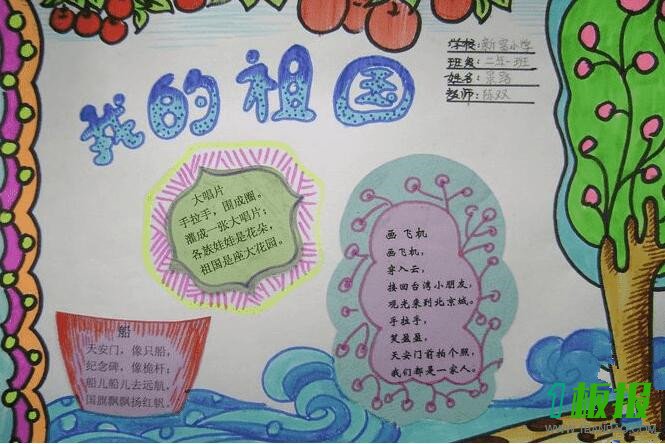 我的祖国
学校:新宫小学
班级:二年一班
姓名:
教师:陈双
大唱片
手拉手,围成圈。
灌成一张大唱片;
各族娃娃是花朵,
祖国是座大花园。
画飞机
画飞机,
穿入云,
接回台湾小朋友,
观光来到北京城。
手拉手,
笑盈盈,
天安门前拍个照,
我们都是一家人。
船
天安门,像只船,
纪念碑,像桅杆;
船儿船儿去远航,
国旗飘飘扬红帆。
板报